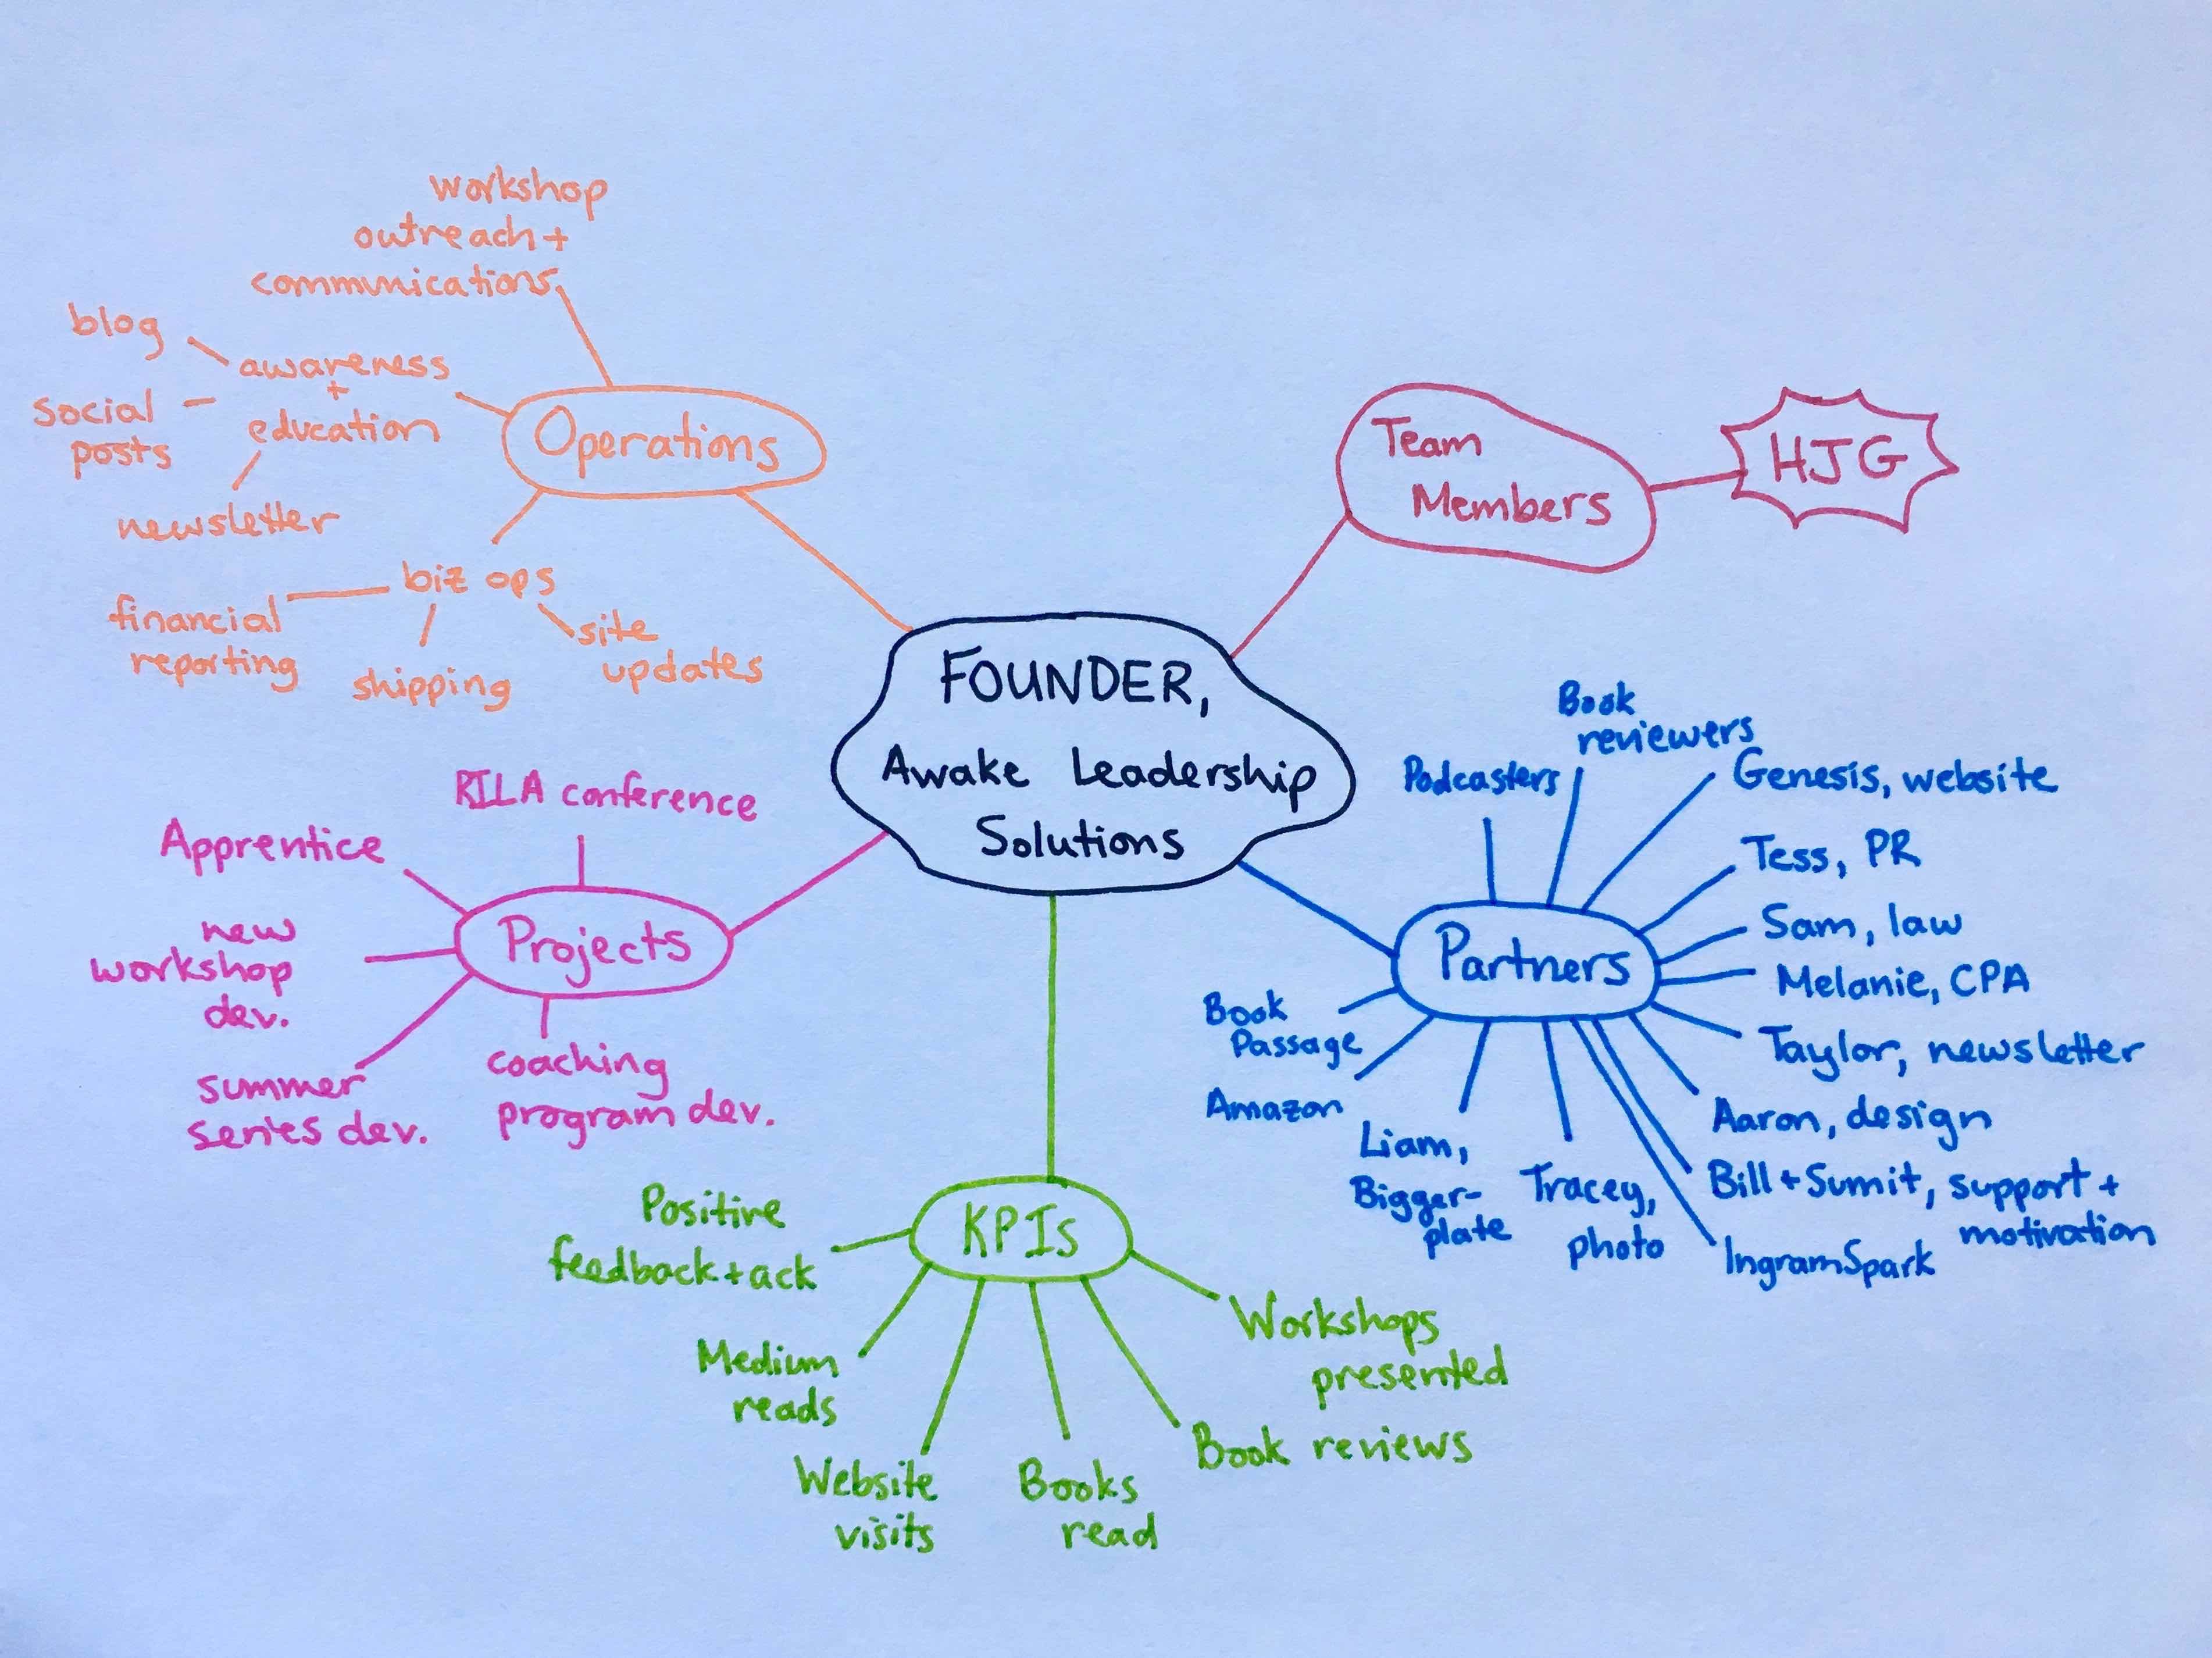 workshop
outreach +
communications
blog
awareness
+
education
social
posts
newsletter
Operations
biz ops
financial
reporting
shipping
site
updates
Team
Members
HJG
FOUNDER,
Awake Leadership
Solutions
RILA conference
Apprentice
new
workshop
dev.
Projects
summer
series dev.
coaching
program dev.
Book
reviewers
Podcasters
Genesis, website
Tess, PR
Sam, law
Partners
Melanie, CPA
Taylor, newsletter
Aaron, design
Bill + Sumit, support +
motivation
IngramSpark
Tracey,
photo
Liam,
Bigger-
plate
Amazon
Book
Passage
KPIs
Positive
feedback + ack
Medium
reads
Website
visits
Books
read
Book reviews
Workshops
presented